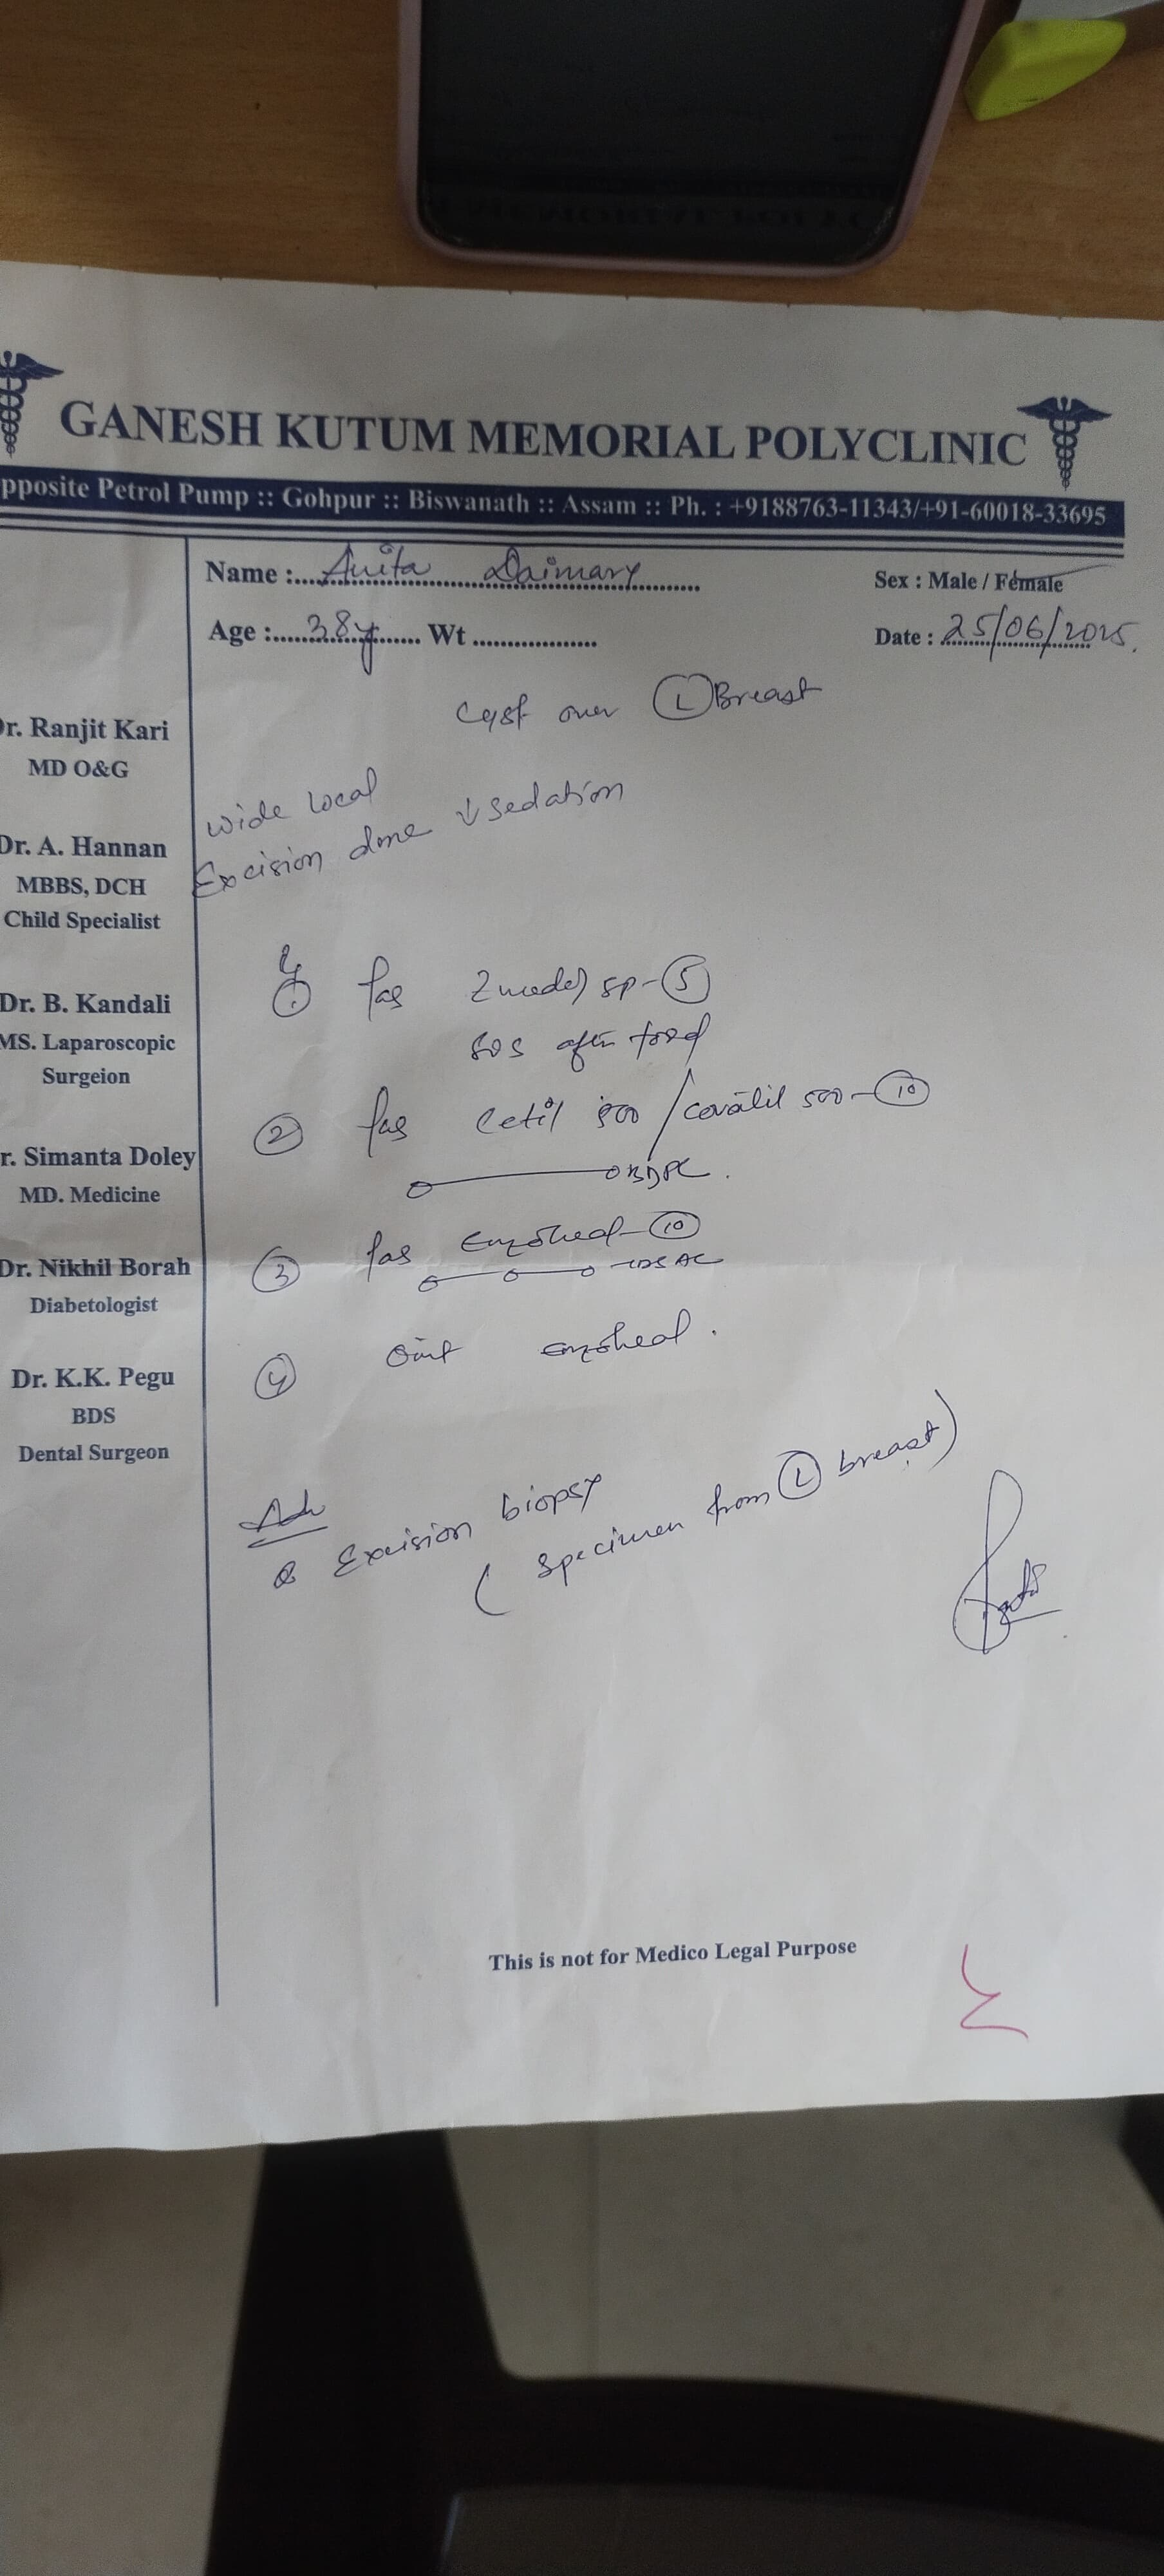 GANESH KUTUM MEMORIAL POLYCLINIC
pposite Petrol Pump :: Gohpur :: Biswanath :: Assam :: Ph. : +9188763-11343/+91-60018-33695
Name : Anita Daimary
Sex : Male / Female
Age : 38y Wt
Date : 25/06/2025.
r. Ranjit Kari
MD O&G
Dr. A. Hannan
MBBS, DCH
Child Specialist
Dr. B. Kandali
MS. Laparoscopic
Surgeion
r. Simanta Doley
MD. Medicine
Dr. Nikhil Borah
Diabetologist
Dr. K.K. Pegu
BDS
Dental Surgeon
Cyst over L Breast
Wide local
Excision done ↓ sedation
1 SP - 5
SOS after food
2 Cetil 500 / 500 - 10
BDPC.
3 Enzoheal - 10
TDS AC
4 Oint Enzoheal.
Adv
Excision biopsy
( Specimen from L breast )
This is not for Medico Legal Purpose